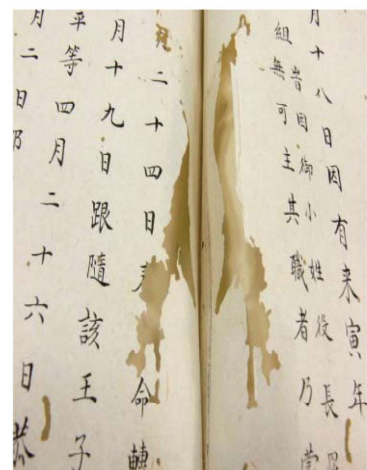 月十八日因有来寅年
因御小姓役長
組無可主其職者乃當
月二十四日命轉
月十九日跟隨該王子
平等四月二十六日恭
月二日